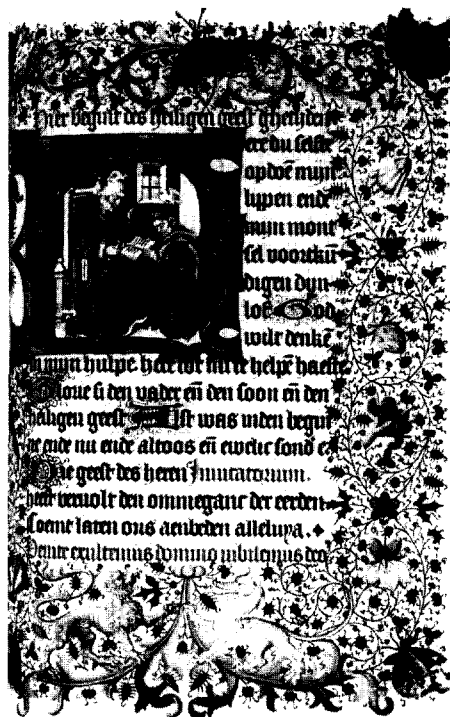 Hier begint des heiligen geest ghetiden
ere du selste
opdoē mijn
lippen ende
mijn mont
sel voortkū
digen dyn
lof God
wilt denkē
in myn hulpe here tot mi te helpē haeste
Glorie si den vader eñ den soon eñ den
heiligen geest Alst was inden begin
ne ende nu ende altoos eñ ewelic sond e
Die geest des heren Inuitatorium.
heeft veruolt den ommeganc der eerden
Coemt laten ons aenbeden alleluya.
Venite exultemus domino iubilemus deo